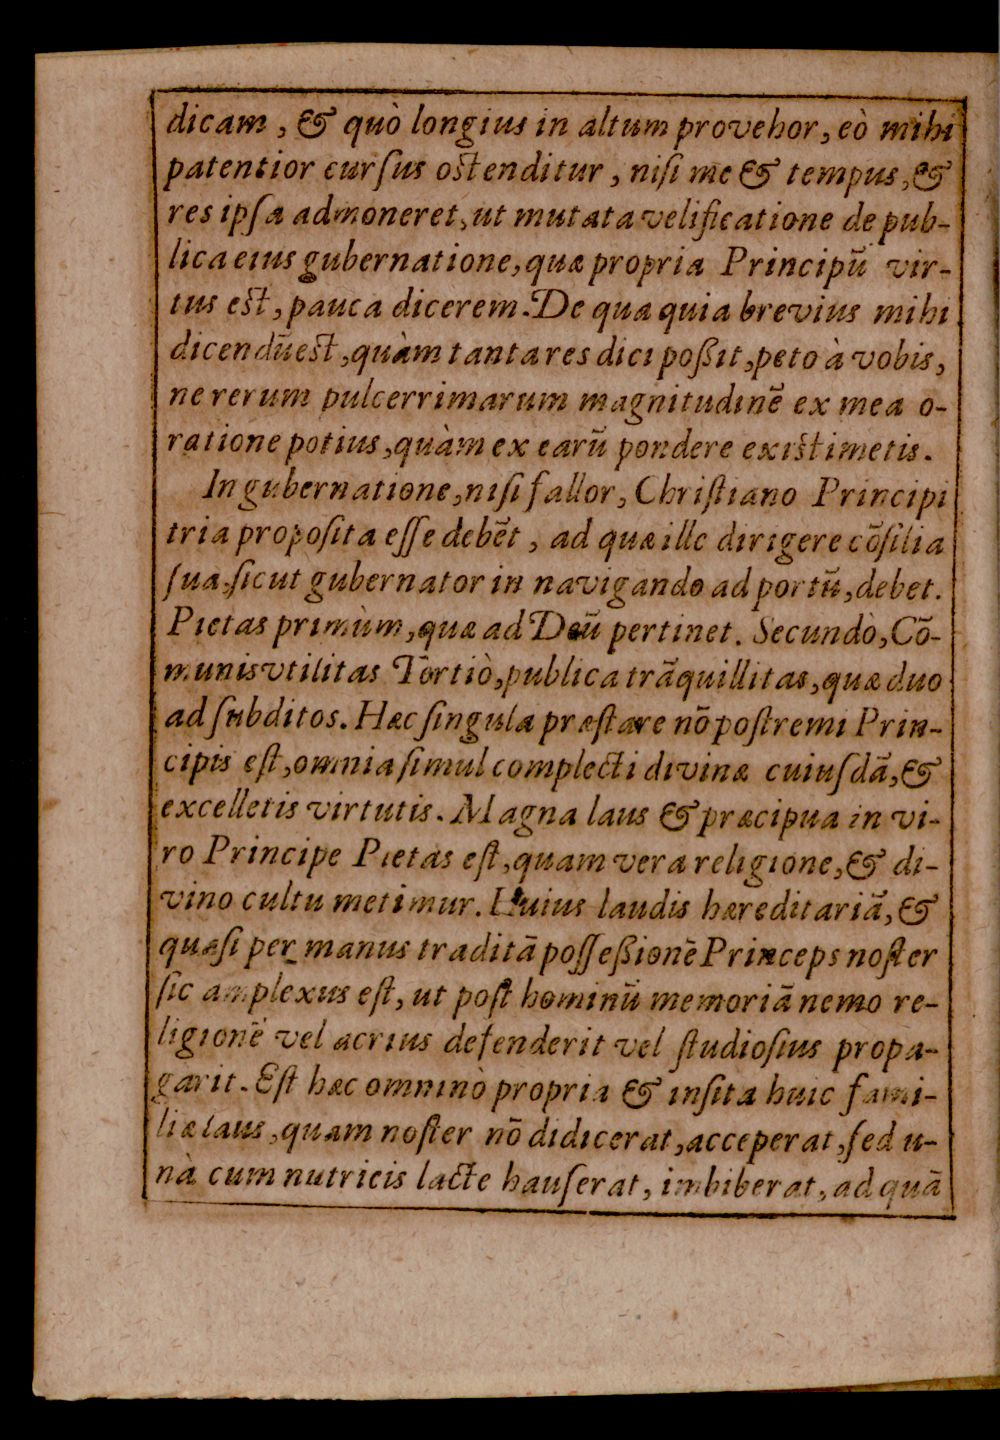 dicam, & quò longius in altum provehor, eò mihi
patentior cursus ostenditur, nisi me & tempus, &
res ipsa admoneret, ut mutata velificatione de pub-
lica eius gubernatione, quæ propria Principũ vir-
tus est, pauca dicerem. De qua quia brevius mihi
dicendũ est, quàm tanta res dici poßit, peto à vobis,
ne rerum pulcerrimarum magnitudinẽ ex mea o-
ratione potius, quàm ex earũ pondere existimetis.
In gubernatione, nisi fallor, Christiano Principi
tria proposita esse debẽt, ad quæ ille dirigere cõsilia
sua, sicut gubernator in navigando ad portũ, debet.
Pietas primùm, quæ ad Deũ pertinet. Secundò, Cõ-
munis vtilitas Tertiò, publica trãquillitas, quæ duo
ad subditos. Hæc singula præstare nõ postremi Prin-
cipis est, omnia simul complecti divinæ cuiusdã, &
excelletis virtutis. Magna laus & præcipua in vi-
ro Principe Pietas est, quam vera religione, & di-
vino cultu metimur. Huius laudis hæreditariã, &
quasi per manus traditã possessionẽ Princeps noster
sic amplexus est, ut post hominũ memoriã nemo re-
ligionẽ vel acrius defenderit vel studiosius propa-
garit. Est hæc omninò propria & insita huic fami-
liæ laus, quam noster nõ didicerat, acceperat, sed u-
nà cum nutricis lacte hauserat, imbiberat, ad quã